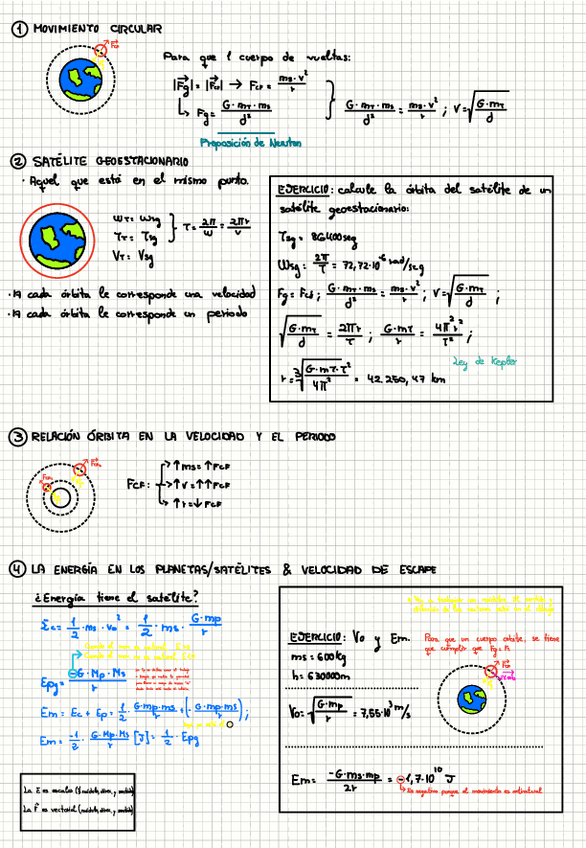 ① MOVIMIENTO CIRCULAR
Para que 1 cuerpo de vueltas:
|Fg| = |Fcf| → Fcf = ms·v²/r
↳ Fg = G·mT·ms/d²
G·mT·ms/d² = ms·v²/r ; V = √(G·mT/d)
Proposición de Newton
② SATÉLITE GEOESTACIONARIO
· Aquel que está en el mismo punto.
ωT = ωsg
TT = Tsg
VT = Vsg
T = 2π/ω = 2πr/v
· A cada órbita le corresponde una velocidad
· A cada órbita le corresponde un periodo
EJERCICIO: calcule la órbita del satélite de un
satélite geoestacionario:
Tsg = 86400seg
ωsg = 2π/T = 72,72·10⁻⁶ rad/seg
Fg = Fcf ; G·mT·ms/d² = ms·v²/r ; V = √(G·mT/d) ;
√(G·mT/d) = 2πr/T ; G·mT/r = 4π²r²/T² ;
Ley de Kepler
r = ∛(G·mT·T²/4π²) = 42.250,47 km
③ RELACIÓN ÓRBITA EN LA VELOCIDAD Y EL PERIODO
FcF: → ↑ms = ↑FcF
→ ↑v = ↑↑FcF
→ ↑r = ↓FcF
④ LA ENERGÍA EN LOS PLANETAS/SATÉLITES & VELOCIDAD DE ESCAPE
¿Energía tiene el satélite?
Ec = 1/2 · ms · vo² = 1/2 · ms · G·mp/r
Epg = -G·Mp·Ms/r
Em = Ec + Ep = 1/2 G·mp·ms/r + (- G·mp·ms/r) ;
Em = -1/2 · G·Mp·Ms/r [J] = 1/2 · Epg
La E es escalar
La F es vectorial
EJERCICIO: Vo y Em.
Para que un cuerpo orbite, se tiene
que cumplir que Fg =
ms = 600kg
h = 630000m
Vo = √(G·mp/r) = 7,55·10³ m/s
Em = -G·ms·mp/2r = -1,7·10¹⁰ J
Es negativo porque el movimiento es